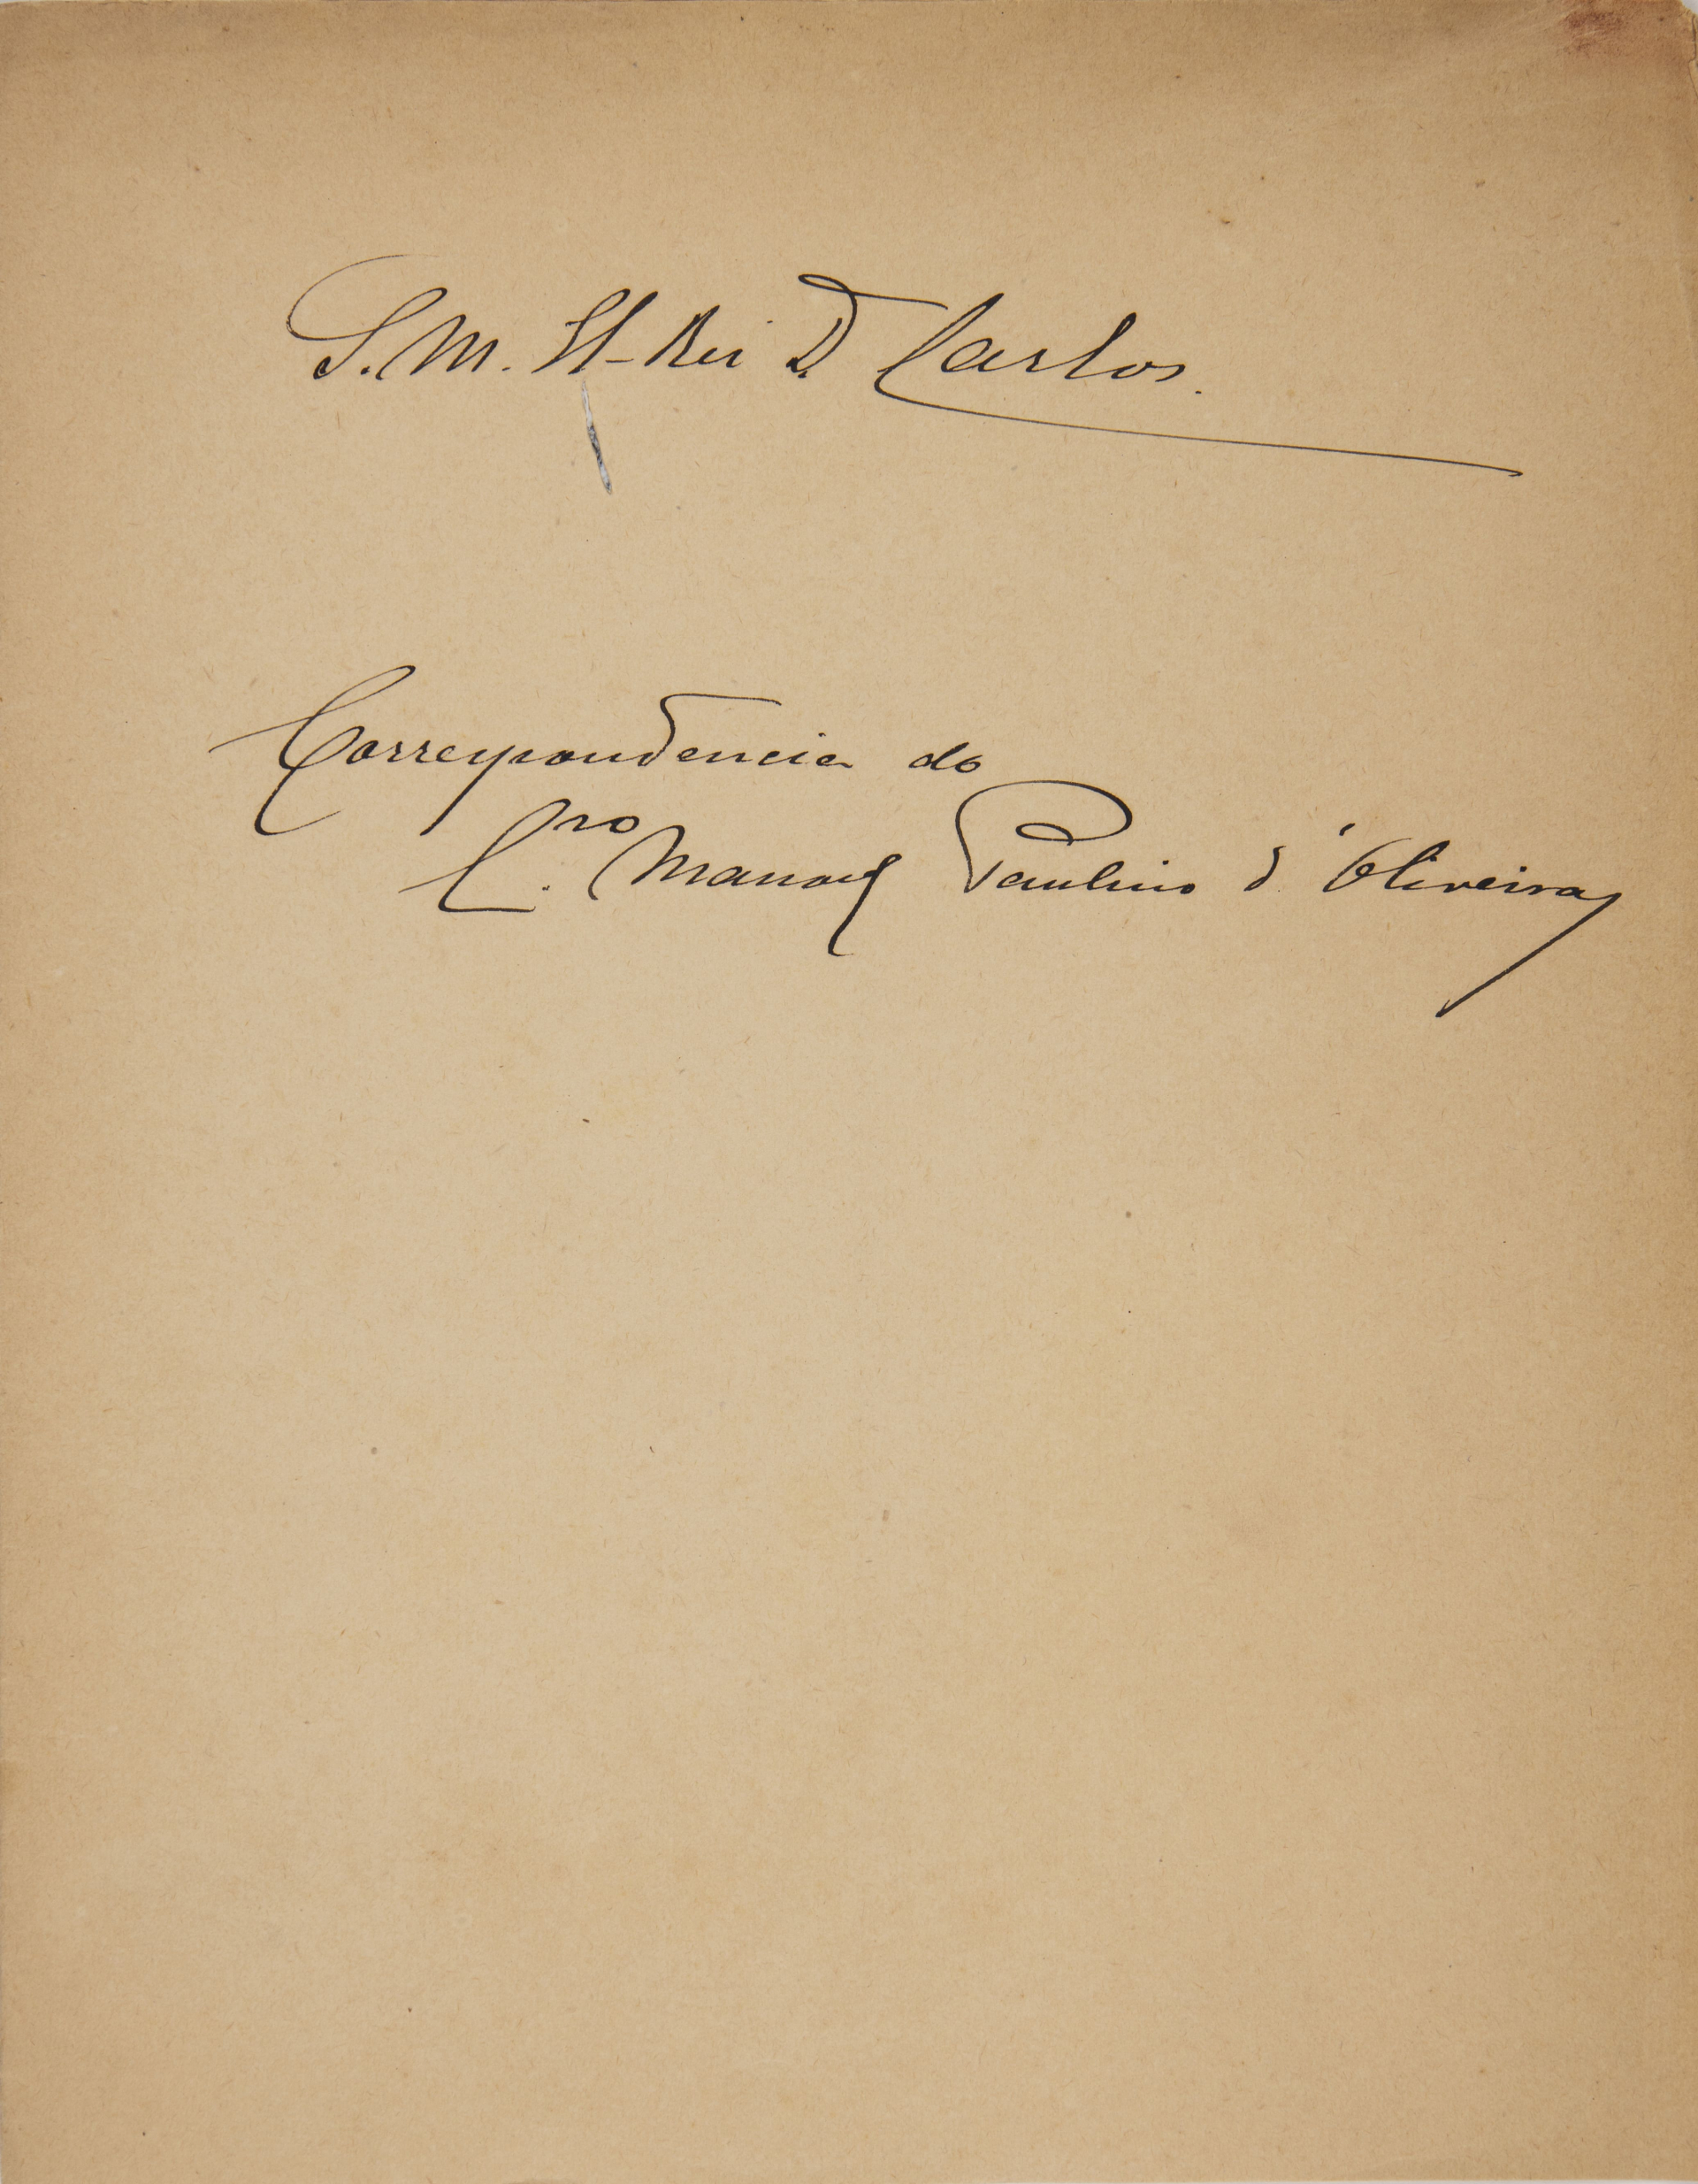 S. M. El-Rei D. Carlos.
Correspondencia do
C.ro Manoel Paulino d'Oliveira